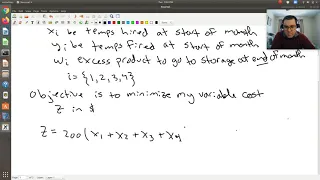 xi be temps hired at start of month
yi be temps fired at start of month
wi excess product to go to storage at end of month
is {1,2,3,4}
Objective is to minimize my variable cost
Z in $
Z = 200(x1 + x2 + x3 + x4